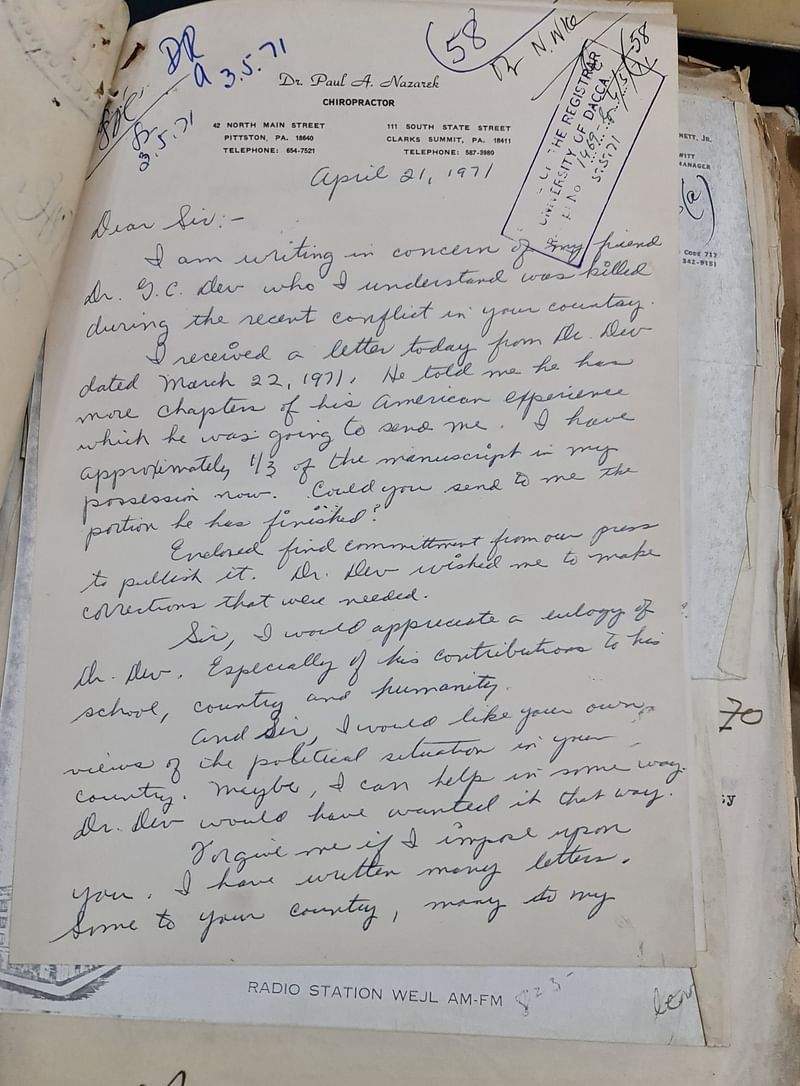 DR
3.5.71
58
Dr. Paul A. Nazarek
CHIROPRACTOR
42 NORTH MAIN STREET
PITTSTON, PA. 18640
TELEPHONE: 654-7521
111 SOUTH STATE STREET
CLARKS SUMMIT, PA. 18411
TELEPHONE: 587-3980
THE REGISTRAR
UNIVERSITY OF DACCA
April 21, 1971
Dear Sir:-
I am writing in concern of my friend
Dr. G.C. Dev who I understand was killed
during the recent conflict in your country.
I received a letter today from Dr. Dev
dated March 22, 1971. He told me he has
more chapters of his American experience
which he was going to send me. I have
approximately 1/3 of the manuscript in my
possession now. Could you send to me the
portion he has finished?
Enclosed find committment from our press
to publish it. Dr. Dev wished me to make
corrections that were needed.
Sir, I would appreciate a eulogy of
Dr. Dev. Especially of his contributions to his
school, country and humanity.
And Sir, I would like your own
views of the political situation in your
country. Maybe, I can help in some way.
Dr. Dev would have wanted it that way.
Forgive me if I impose upon
you. I have written many letters.
Some to your country, many to my
RADIO STATION WEJL AM-FM
NETT, JR.
MANAGER
CODE 717
342-9151
70